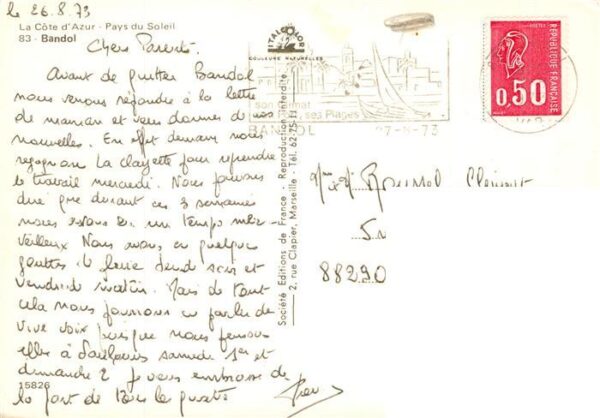 le 26.8.73
La Côte d'Azur - Pays du Soleil
83 - Bandol
Chers Parents.
Avant de quitter Bandol
nous venons répondre à la lettre
de maman et vous donner de nos
nouvelles. En effet demain nous
regagnons La Clayette pour reprendre
le travail mercredi. Nous pouvons
dire que durant ces 3 semaines
nous avons eu un temps mer-
veilleux Nous avons eu quelques
gouttes de pluie jeudi soir et
vendredi matin. Mais de tout
cela nous pourrons en parler de
vive voix puisque nous pensons
aller à samedi 1er et
dimanche 2 Je vous embrasse de
la part de tous le quatre
15826
ITALCOLOR
COULEURS NATURELLES
son Climat
ses Plages
BANDOL
27-8-73
POSTES
REPUBLIQUE FRANÇAISE
0,50
VAR
Société Editions de France - Reproduction interdite
2, rue Clapier, Marseille - Tél. 62-75-11
Mme & Mr Roussel Clément
88290